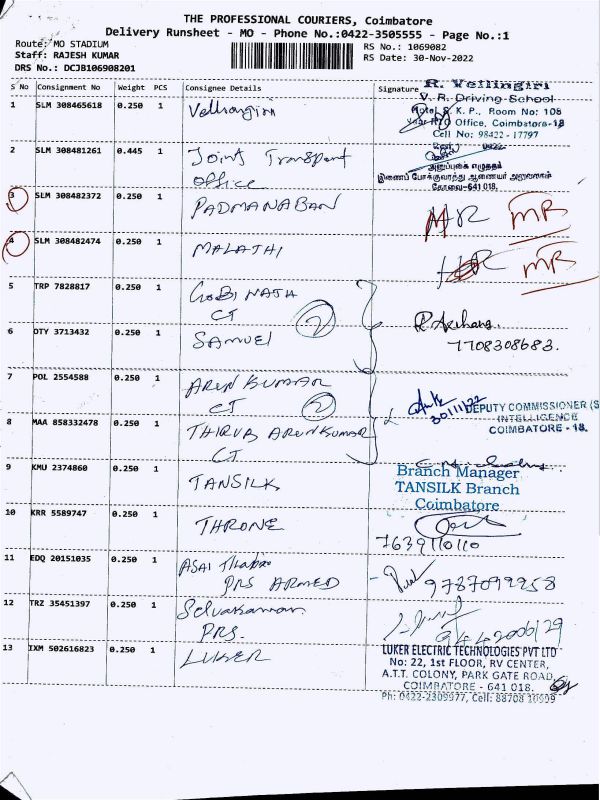 THE PROFESSIONAL COURIERS, Coimbatore
Delivery Runsheet - MO - Phone No.:0422-3505555 - Page No.:1
Route: MO STADIUM
Staff: RAJESH KUMAR
DRS No.: DCJB106908201
RS No.: 1069082
RS Date: 30-Nov-2022
S No Consignment No Weight PCS Consignee Details Signature
R. Vellingiri
V. R. Driving School
K. P., Room No: 108
Office, Coimbatore-18
Cell No: 98422 - 17797
1 SLM 308465618 0.250 1
2 SLM 308481261 0.445 1 Joint Transport
office
இணைப் போக்குவரத்து ஆணையர் அலுவலகம்
கோவை-641 018.
3 SLM 308482372 0.250 1 PADMANABAN MR
4 SLM 308482474 0.250 1 MALATHI MR
5 TRP 7828817 0.250 1 GOBINATH
CT 2
6 OTY 3713432 0.250 1 SAMUEL
7708308683.
7 POL 2554588 0.250 1 ARUN KUMAR
CT 2
30/11/22
DEPUTY COMMISSIONER (S
INTELLIGENCE
COIMBATORE - 18.
8 MAA 858332478 0.250 1 THIRUB ARUNKUMAR
CT
9 KMU 2374860 0.250 1 TANSILK
Branch Manager
TANSILK Branch
Coimbatore
10 KRR 5589747 0.250 1 THRONE
7639110110
11 EDQ 20151035 0.250 1 ASAI
PRS ARMED
9787099958
12 TRZ 35451397 0.250 1 Selvakumar
PRS.
13 IXM 502616823 0.250 1 LUKER
LUKER ELECTRIC TECHNOLOGIES PVT LTD
No: 22, 1st FLOOR, RV CENTER,
A.T.T. COLONY, PARK GATE ROAD,
COIMBATORE - 641 018.
Ph: 0422-2309977, Cell: 88708 10999